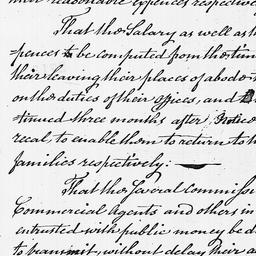 their reasonable expences respective
That the Salary as well as t
=pences to be computed from the tim
their leaving their places of abode
on the duties of their offices, and
=tinued three months after Notice
recal, to enable them to return to th
families respectively:
That the several commiss
Commercial Agents and others in
entrusted with public money be d
to transmit, without delay their a